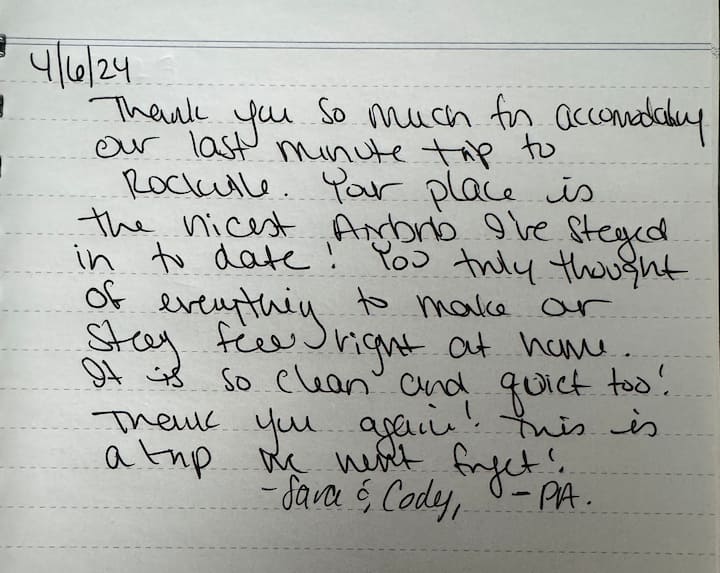 4/6/24
Thank you so much for accomodating
our last minute trip to
Rockville. Your place is
the nicest Airbnb I've stayed
in to date! You truly thought
of everything to make our
stay feel right at home.
It is so clean and quiet too!
Thank you again! This is
a trip we won't forget!
- Sara & Cody, - PA.